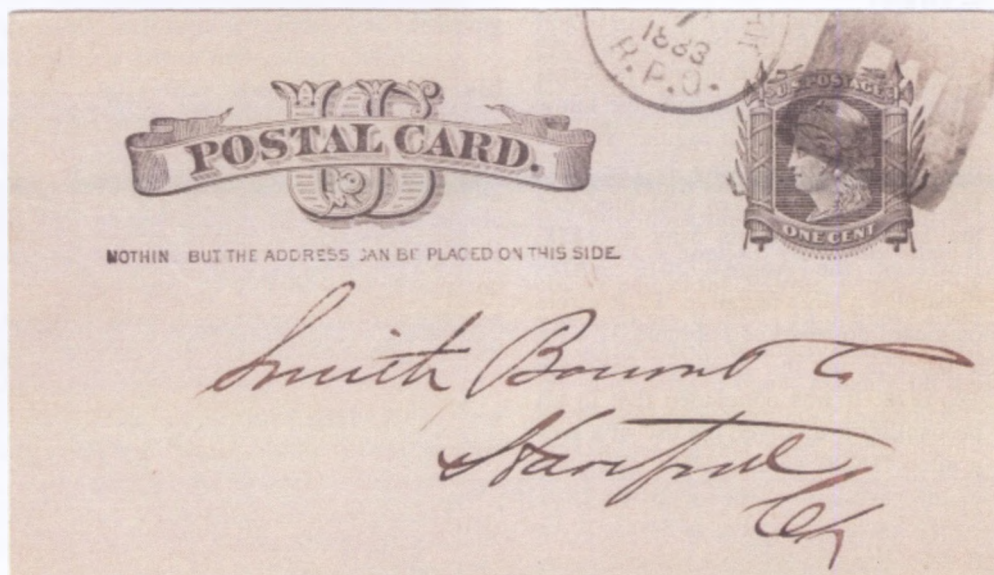 1883
R.P.O.
U.S. POSTAGE
US
POSTAL CARD.
ONE CENT
NOTHIN BUT THE ADDRESS CAN BE PLACED ON THIS SIDE.
Smith Bourn & Co
Hartford
Ct